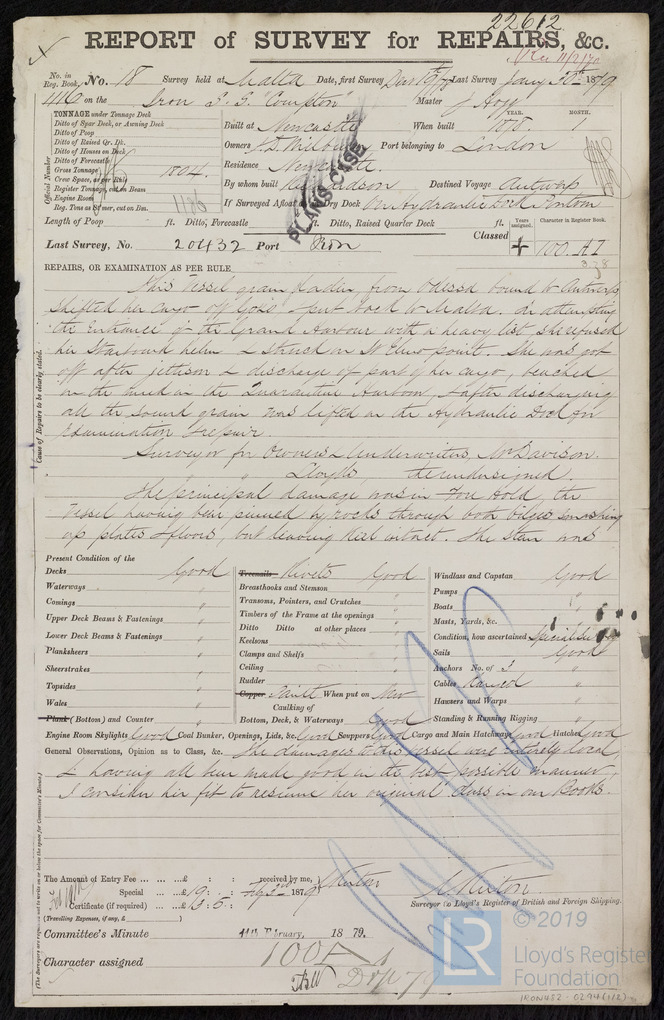 22612
REPORT of SURVEY for REPAIRS, &c.
No. in Reg. Book. No. 18 Survey held at Malta Date, first Survey Last Survey Jany 30th 1879
416 on the Iron S.S. "Compton" Master J Hogg
TONNAGE under Tonnage Deck
Ditto of Spar Deck, or Awning Deck
Ditto of Poop
Ditto of Raised Qr. Dk.
Ditto of Houses on Deck
Ditto of Forecastle
Gross Tonnage
Crew Space, as per Rule
Register Tonnage, cut on Beam
Engine Room
Reg. Tons as Str. mer, cut on Dn.
Official Number
1804
1186
YEAR. MONTH.
Built at Newcastle When built 1878. 1
Owners Port belonging to London
Residence Newcastle.
By whom built Destined Voyage Antwerp
If Surveyed Afloat or in Dry Dock On Hydraulic Dock Pontoon
PLANS CASE
Length of Poop ft. Ditto, Forecastle ft. Ditto, Raised Quarter Deck ft.
Last Survey, No. 20432 Port Iron Classed Years assigned. Character in Register Book. 100. A 1
3.78
REPAIRS, OR EXAMINATION AS PER RULE
This Vessel grain laden from Odessa bound to Antwerp
shifted her cargo off & put back to Malta. In attempting
the Entrance of the Grand Harbour with a heavy list she refused
her Starboard helm & struck on St Elmo point. She was got
off after jettison & discharge of part of her cargo, beached
on the mud in the Quarantine Harbour, & after discharging
all the sound grain was lifted on the Hydraulic Dock for
Examination & repair.
Surveyor for Owners & Underwriters, Mr Davison.
" Lloyds, the undersigned.
The principal damage was in Fore Hold, the
Vessel having been pinned by rocks through both bilges smashing
up plates & floors, but leaving keel intact. The stem was
(Cause of Repairs to be clearly stated.)
Present Condition of the
Decks Good
Waterways "
Comings "
Upper Deck Beams & Fastenings "
Lower Deck Beams & Fastenings "
Planksheers "
Sheerstrakes "
Topsides "
Wales "
Plank (Bottom) and Counter "
Treenails Rivets Good
Breasthooks and Stemson "
Transoms, Pointers, and Crutches "
Timbers of the Frame at the openings "
Ditto Ditto at other places "
Keelsons "
Clamps and Shelfs "
Ceiling "
Rudder "
Copper Paint When put on New
Caulking of
Bottom, Deck, & Waterways Good
Windlass and Capstan Good
Pumps "
Boats "
Masts, Yards, &c. "
Condition, how ascertained Special Survey
Sails Good
Anchors No. of 3 "
Cables Ranged "
Hawsers and Warps "
Standing & Running Rigging "
Engine Room Skylights Good Coal Bunker, Openings, Lids, &c. Good Scuppers Good Cargo and Main Hatchways Good Hatches Good
General Observations, Opinion as to Class, &c. The damages to this vessel were entirely local,
& having all been made good in the best possible manner,
I consider her fit to resume her original class in our Books.
The Amount of Entry Fee ... ... ... £ : : received by me,
Special ... ... £19 : : 1879
Certificate (if required) ... £3 : 5 :
(Travelling Expenses, if any, £ )
Surveyor to Lloyd's Register of British and Foreign Shipping.
Committee's Minute 11th February, 1879.
Character assigned 100A1
© 2019
LR
Lloyd's Register
Foundation
IRON482-0294(1/2)